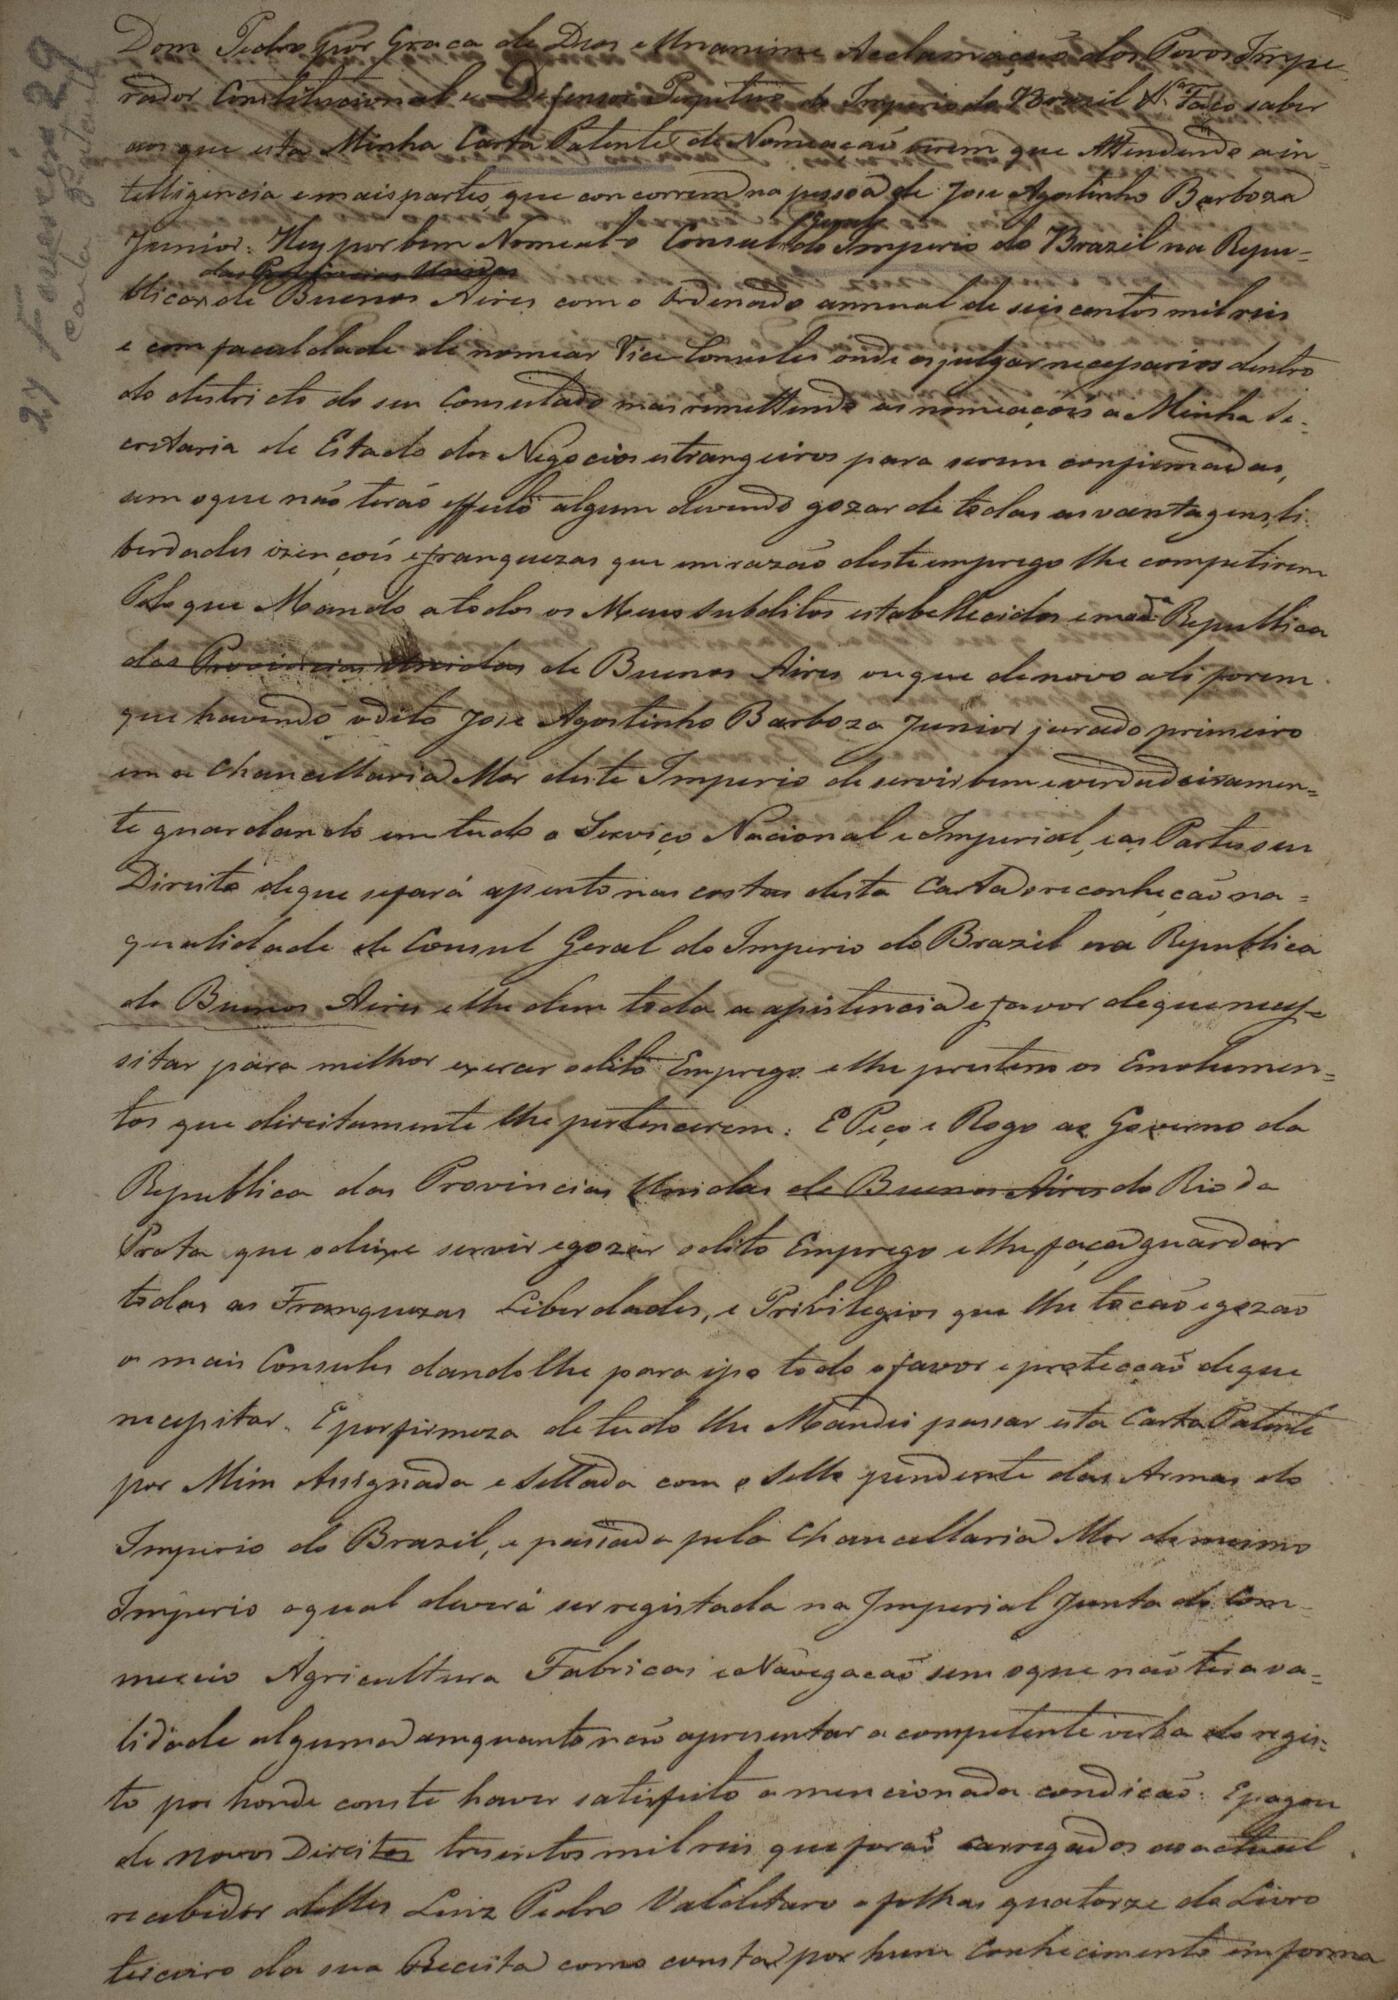 27 fevereiro 29
Carta Patente
Dom Pedro por Graca de Deos e Unanime Acclamação dos Povos Impe-
rador Constitucional e Defensor Perpetuo do Imperio do Brazil &.ª Faço saber
aos que esta Minha Carta Patente de Nomeacaõ virem que Attendendo a in-
telligencia e mais partes que concorrem na pessoa de Jose Agostinho Barboza
Junior: Hey por bem Nomealo Consul Geral do Imperio do Brazil na Repu-
das Provincias Unidas
blica de Buenos Aires com o Ordenado annual de seis centos mil reis
e com faculdade de nomear Vice Consules onde os julgar necessarios dentro
do destricto do seu Consulado mas remettendo as nomeaçoēs a Minha Se-
cretaria de Estado dos Negocios estrangeiros para serem confirmadas,
sem o que não terão effeito algum devendo gozar de todas as vantagens, li-
berdades izençoēs e franquezas que em razão deste emprego lhe competirem
Pelo que Mando a todos os Meus subditos estabellecidos em a dª Republica
das Provincias Unidas de Buenos Aires ou que de novo ali forem
que havendo o dito Jose Agostinho Barboza Junior jurado primeiro
em a Chancellaria Mor deste Imperio de servir bem e verdadeiramen=
te guardando em tudo o Serviço Nacional e Imperial, e as Partes seu
Direito de que se fará assento nas costas desta Carta o reconheção na=
qualidade de Consul Geral do Imperio do Brazil na Republica
de Buenos Aires e lhe dem toda a assistencia e favor de que neces-
sitar para milhor exercer o dito Emprego e lhe prestem os Emolumen=
tos que direitamente lhe pertencerem: E Peço e Rogo ao Governo da
Republica das Provincias Unidas de Buenos Aires do Rio da
Prata que o deixe servir e gozar o dito Emprego e lhe faça guardar
todas as Franquezas Liberdades, e Privilegios que lhe tocão e gozão
os mais Consules dandolhe para isso todo o favor e protecçaõ de que
necessitar. E por firmeza de tudo lhe Mandei passar esta Carta Patente
por Mim Assignada e Sellada com o Sello pendente das Armas do
Imperio do Brazil, e passada pela Chancellaria Mor do mesmo
Imperio a qual deverá ser registada na Imperial Junta do Com-
mercio Agricultura Fabricas e Navegacaõ sem o que não tera va=
lidade alguma emquanto não apresentar a competente verba do regis=
to por honde conste haver satisfeito a mencionada condicaõ: E pagou
de Novos Direitos tresentos mil reis que foraõ carregados ao actual
recebedor delles Luiz Pedro Valdetaro a folhas quatorze do Livro
terceiro da sua Receita como consta por hum conhecimento em forma